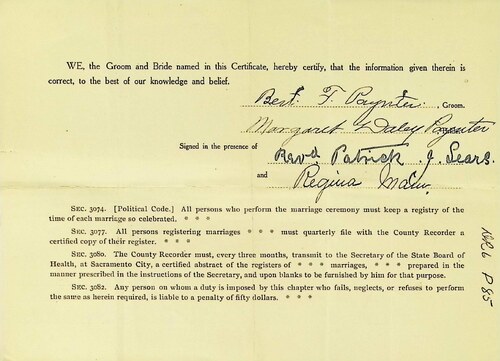 WE, the Groom and Bride named in this Certificate, hereby certify, that the information given therein is
correct, to the best of our knowledge and belief.
Bert. F. Paynter. Groom.
Margaret Daley Paynter
Signed in the presence of Revd. Patrick J. Sears.
and Regina
SEC. 3074. [Political Code.] All persons who perform the marriage ceremony must keep a registry of the
time of each marriage so celebrated. * * *
SEC. 3077. All persons registering marriages * * * must quarterly file with the County Recorder a
certified copy of their register. * * *
SEC. 3080. The County Recorder must, every three months, transmit to the Secretary of the State Board of
Health, at Sacramento City, a certified abstract of the registers of * * * marriages, * * * prepared in the
manner prescribed in the instructions of the Secretary, and upon blanks to be furnished by him for that purpose.
SEC. 3082. Any person on whom a duty is imposed by this chapter who fails, neglects, or refuses to perform
the same as herein required, is liable to a penalty of fifty dollars. * * *
P 85